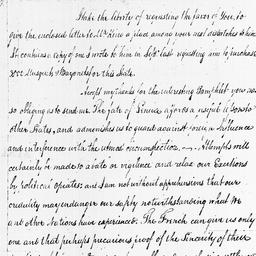 I take the liberty of requesting the favor of You, to
give the enclosed letter to Mr King a place among your next dispatches to him
It contains a copy of one I wrote to him in Sepr last requesting him to purchase
Muskets & Bayonets for this State.
Accept my thanks for the interesting Pamphlet you was
so obliging as to send me. The fate of Venice affords a useful Lesson to
other States, and admonishes us to guard against foreign Influence
and interference with the utmost circumspection. — Attempts will
certainly be made to abate our vigilance and relax our Exertions
by political opiates; and I am not without apprehensions that our
credulity may endanger our safety notwithstanding what We
and other Nations have experienced. The French can give us only
one and that perhaps precarious proof of the Sincerity of their